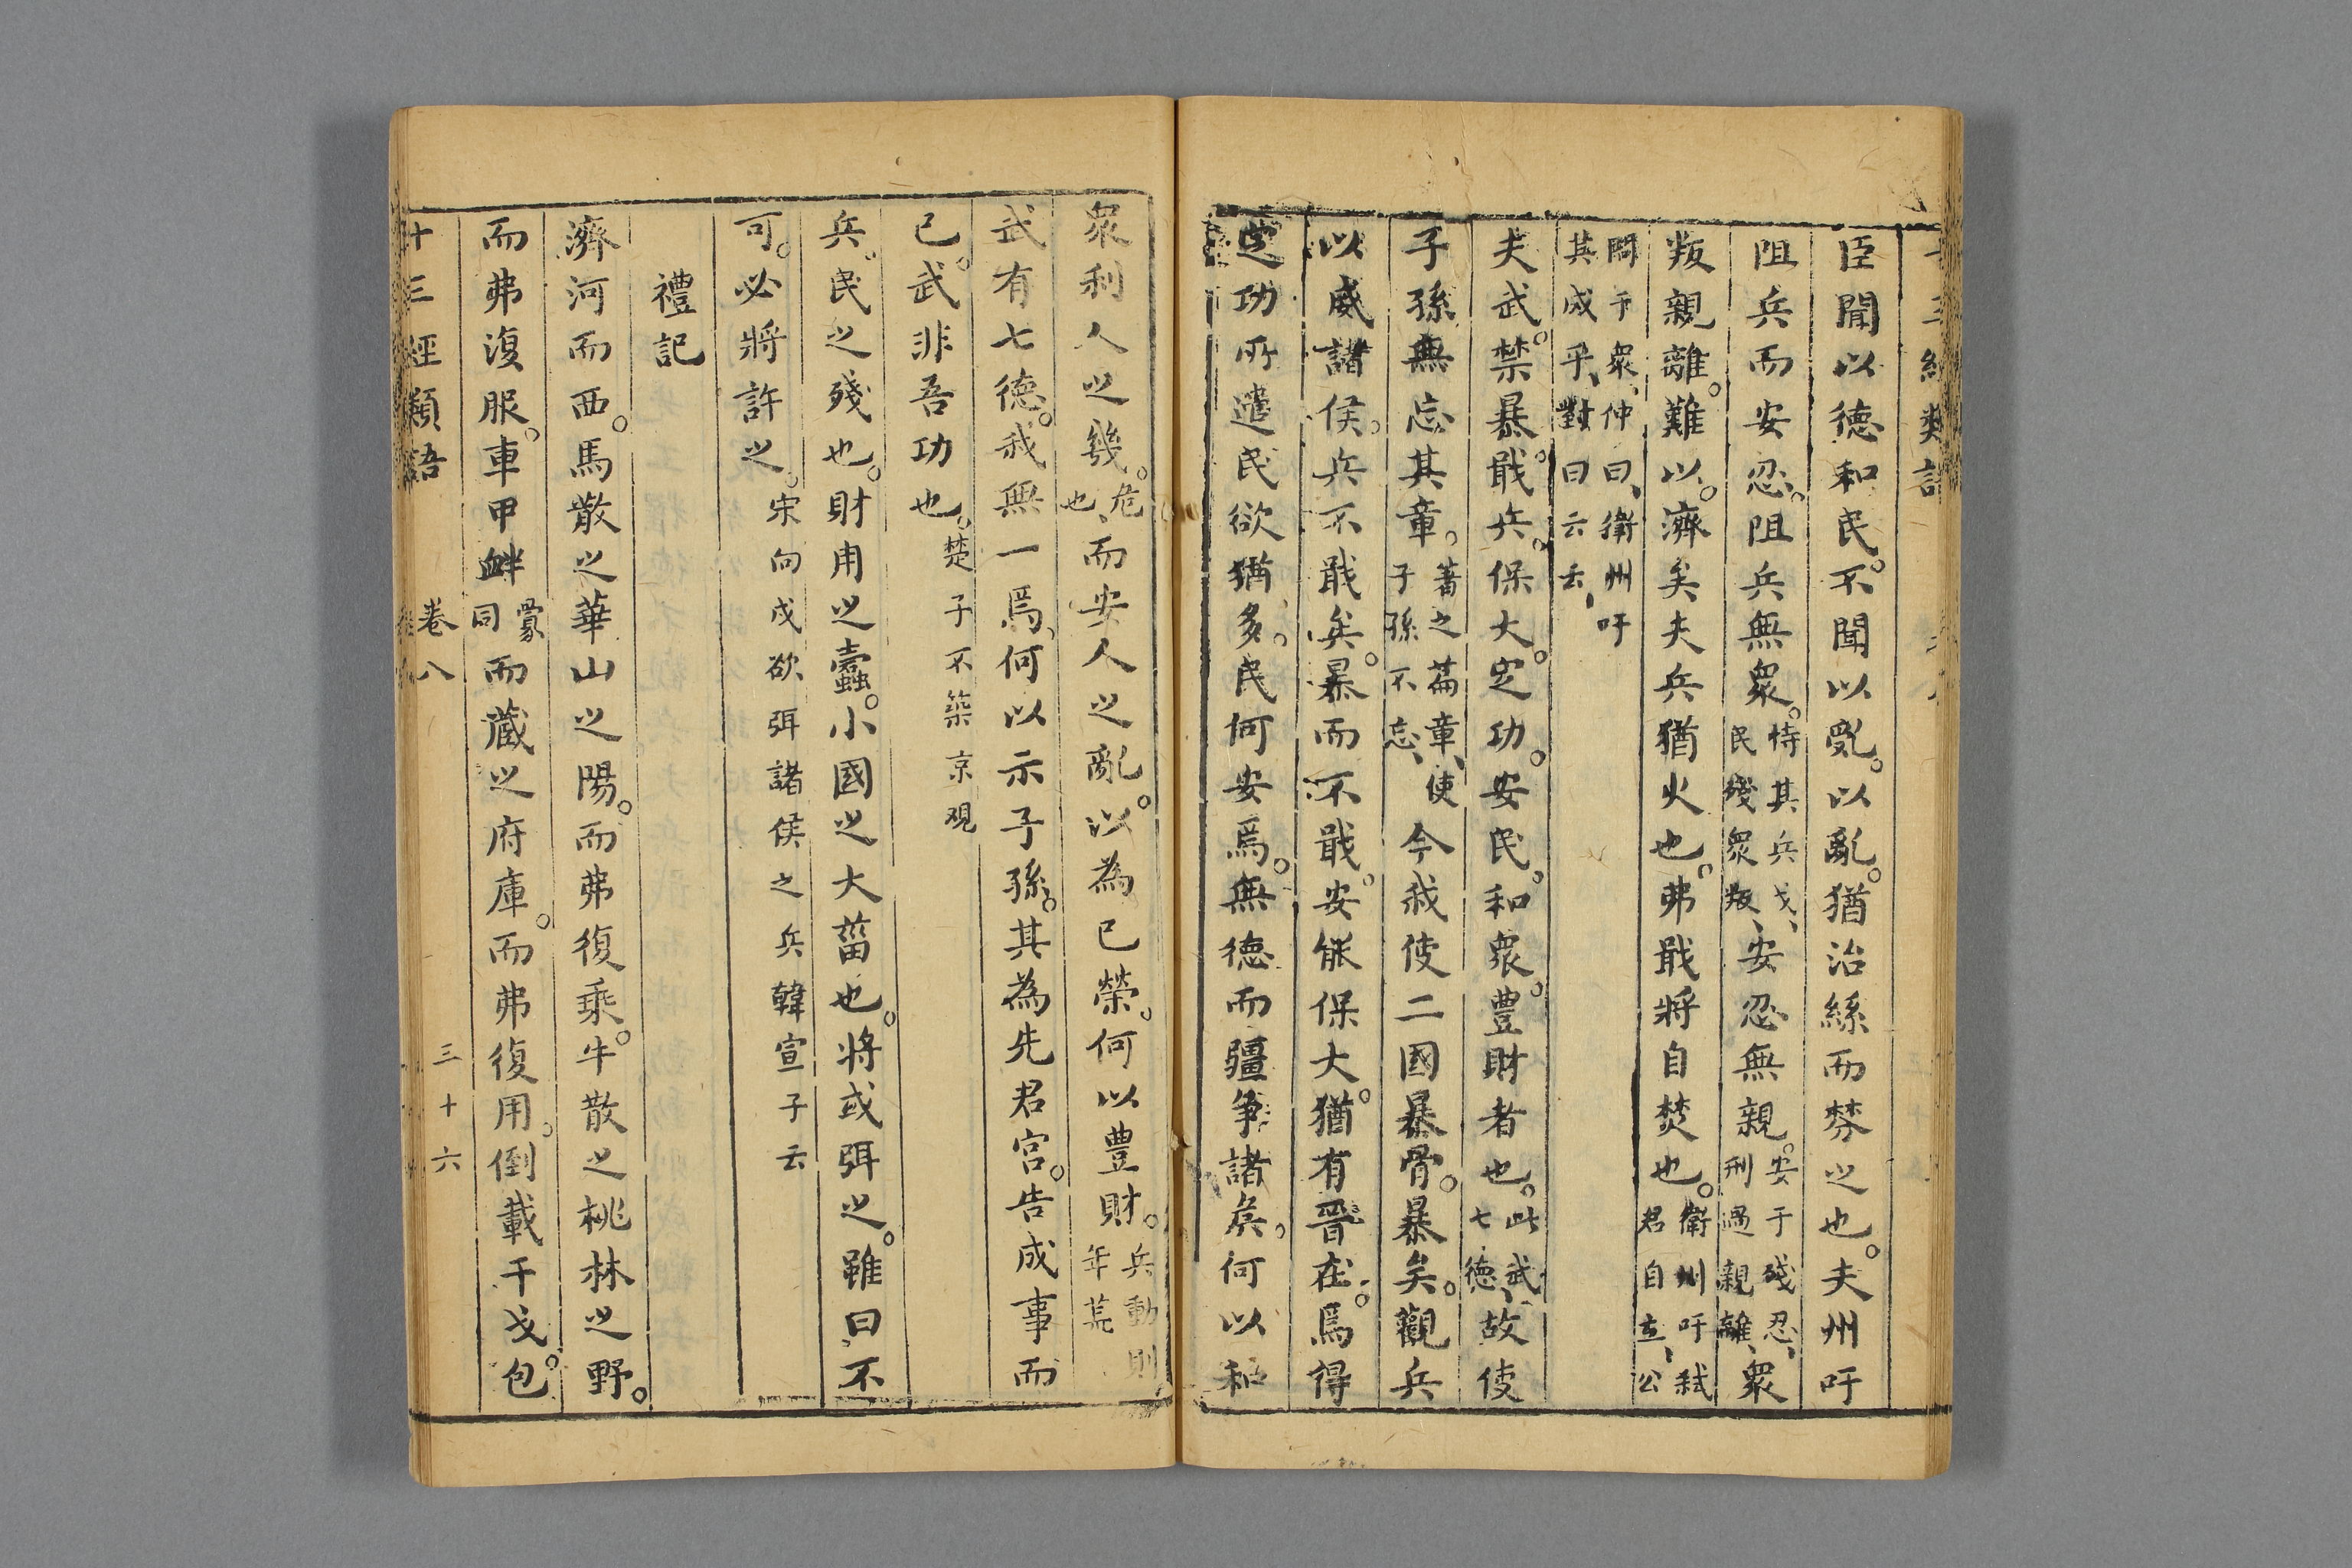 臣聞以徳和民。不聞以亂。以亂。猶治絲而棼之也。夫州吁
阻兵而安忍。阻兵無衆。恃其兵戈、民殘衆叛、安忍無親。安于殘忍、刑過親離、衆
叛親離。難以。濟矣夫兵猶火也。弗戢將自焚也。衛州吁弑君自立、公
問于衆、仲曰、衛州吁其成乎、對曰云云、
夫武。禁暴。戢兵。保大。定功。安民。和衆。豊財者也。此武、七徳、故使
子孫無忘其章。著之篇章、使子孫不忘、今我使二國暴骨。暴矣。觀兵
以威諸侯。兵不戢矣。暴而不戢。安能保大。猶有晉在。焉得
定功所遣民欲猶多。民何安焉。無徳而彊争諸矦。何以和
衆利人之幾。危也、而安人之亂。以為已榮。何以豊財。兵動則年荒
武有七徳。我無一焉、何以示子孫。其為先君宮。告成事而
已。武非吾功也。楚子不築京观
兵。民之殘也。財用之蠹。小國之大菑也。將或弭之。雖曰不
可。必將許之。宋向戌欲弭諸侯之兵韓宣子云
禮記
濟河而西。馬散之華山之陽。而弗復乘。牛散之桃林之野。
而弗復服。車甲衅釁同而蔵之府庫。而弗復用。倒載干戈。包
十三經類語 卷八 三十六